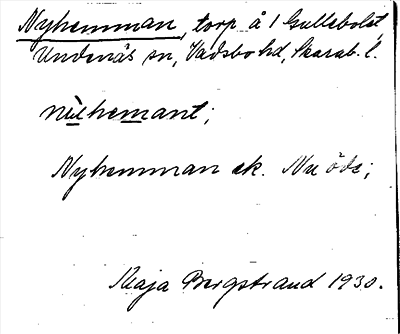 Nyhemman, torp å 1 Gullebolet,
Undenäs sn, Vadsbo hd, Skarab. l.
nỳhemant;
Nyhemman ek. Nu öde;
Maja Bergstrand 1930.